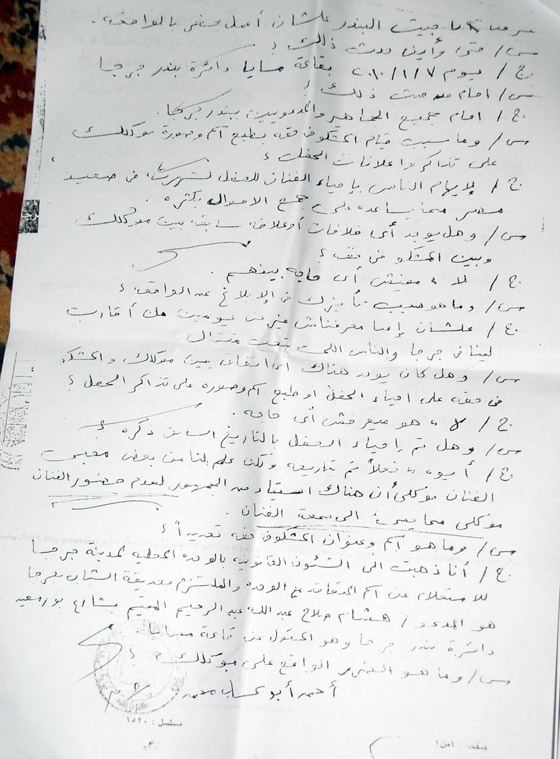 جيت البندر علشان أعمل محضر بالواقعة.
س/ متى وأين حدث ذلك ؟
ج/ يوم ٢٠١٠/١/٧ بقاعة مايا دائرة بندر جرجا
س/ أمام من حدث ذلك ؟
ج/ امام جميع الحاضر والمدعوين ببندر جرجا.
س/ وما سبب قيام المشكو فى حقه بطبع اسم وصورة موكلك
على تذاكر واعلانات الحفل ؟
ج/ لإيهام الناس بإحياء الفنان للحفل لشهرته فى صعيد
مصر مما يساعده على جمع الاموال بكثره.
س/ وهل يوجد أى خلافات أو علاقه سابقه بين موكلك
وبين المشكو فى حقه ؟
ج/ لا مفيش أى حاجه بينهم.
س/ وما هو سبب تأخيرك فى الإبلاغ عن الواقعه ؟
ج/ علشان إحنا معرفناش غير من يومين من أقارب
لينا فى جرجا والناس اللى
س/ وهل كان يوجد هناك أى اتفاق بين موكلك والمشكو
فى حقه على احياء الحفل او طبع اسم وصوره على تذاكر الحفل ؟
ج/ لا هو ميعرفش أى حاجه.
س/ وهل تم إحياء الحفل بالتاريخ السابق ذكره ؟
ج/ أيوه فعلاً تم بتاريخه ولكن علمنا من بعض محبى
الفنان موكلى أن هناك استياء من الجمهور لعدم حضور الفنان
موكلى مما يسئ الى سمعة الفنان.
س/ وما هو اسم وعنوان المشكو فى حقه تحديداً ؟
ج/ أنا ذهبت الى الشئون القانونيه بالوحده المحليه لمدينة جرجا
للاستعلام عن اسم المتعاقد مع الوحده والملتزم بحديقة الشباب بجرجا
هو المدعو/ هشام صلاح عبد الله عبد الرحيم المقيم بشارع بورسعيد
دائرة بندر جرجا وهو المسئول عن قاعة مايا
س/ وما هو الضرر الواقع على موكلك ؟
أحمد أبو محمد
مسلسل : ١٥٢٠